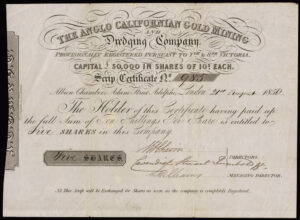 THE ANGLO CALIFORNIAN GOLD MINING
AND
Dredging Company.
PROVISIONALLY REGISTERED PURSUANT TO 7TH & 8TH VICTORIA.
CAPITAL £50,000 IN SHARES OF 10/- EACH.
Scrip Certificate No. 985
Albion Chambers, Adam Street, Adelphi, London 21st August 1850.
The Holder of this Certificate having paid up
the full Sum of Ten Shillings Per Share is entitled to
Five SHARES in this Company.
Five SHARES.
DIRECTORS.
MANAGING DIRECTOR.